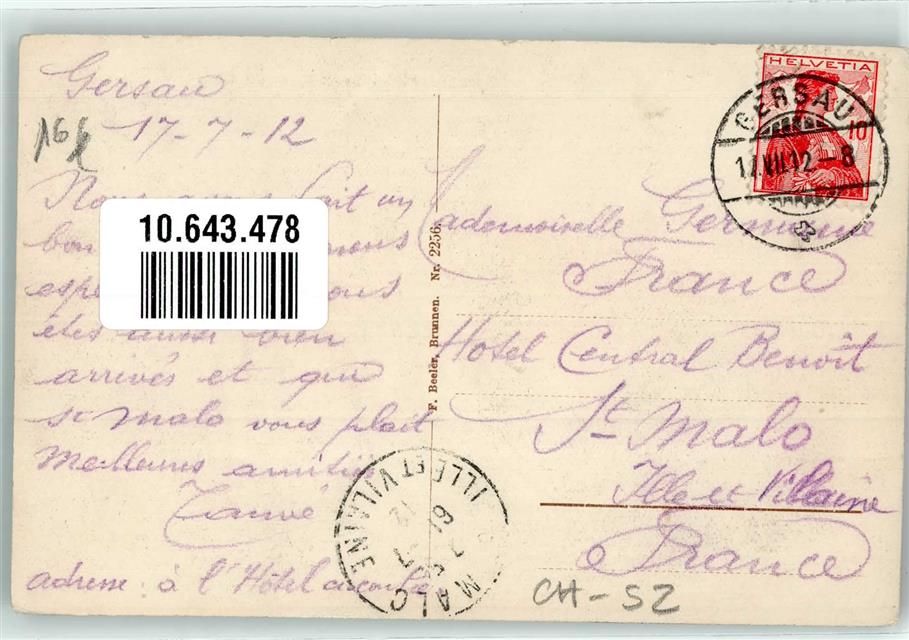 Gersau
17-7-12
16
Nous fait un
bon nous
espe ous
êtes aussi bien
arrivés et que
St malo vous plait
meilleures amitiés
adresse à l'Hôtel
10.643.478
F. Beeler, Brunnen. Nr. 2256.
HELVETIA
10
GERSAU
17.VII.12-8
Mademoiselle Germaine
France
Hotel Central Benoît
St Malo
Ille et Vilaine
France
MALO
ILLE ET VILAINE
19
7
12
CH-SZ